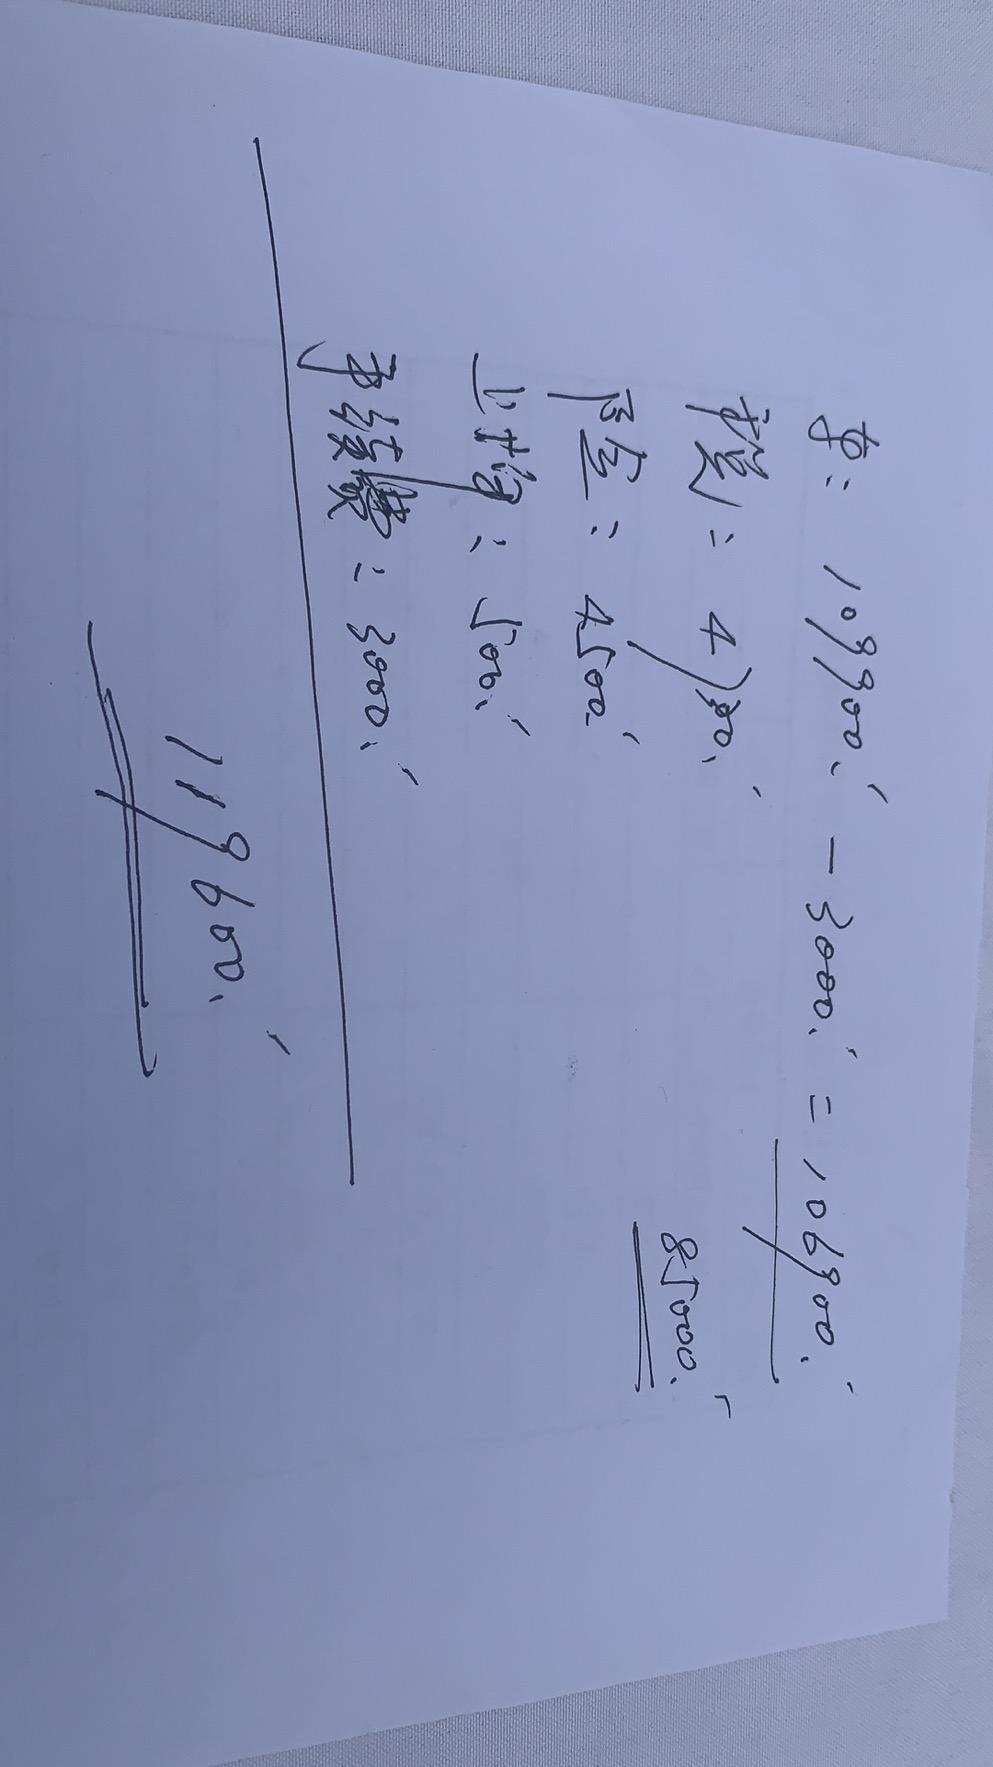 車: 109900.- - 3000.- = 106900.-
税: 4700.-
: 4500.-
85000.-
: 500.-
手續費: 3000.-
119600.-